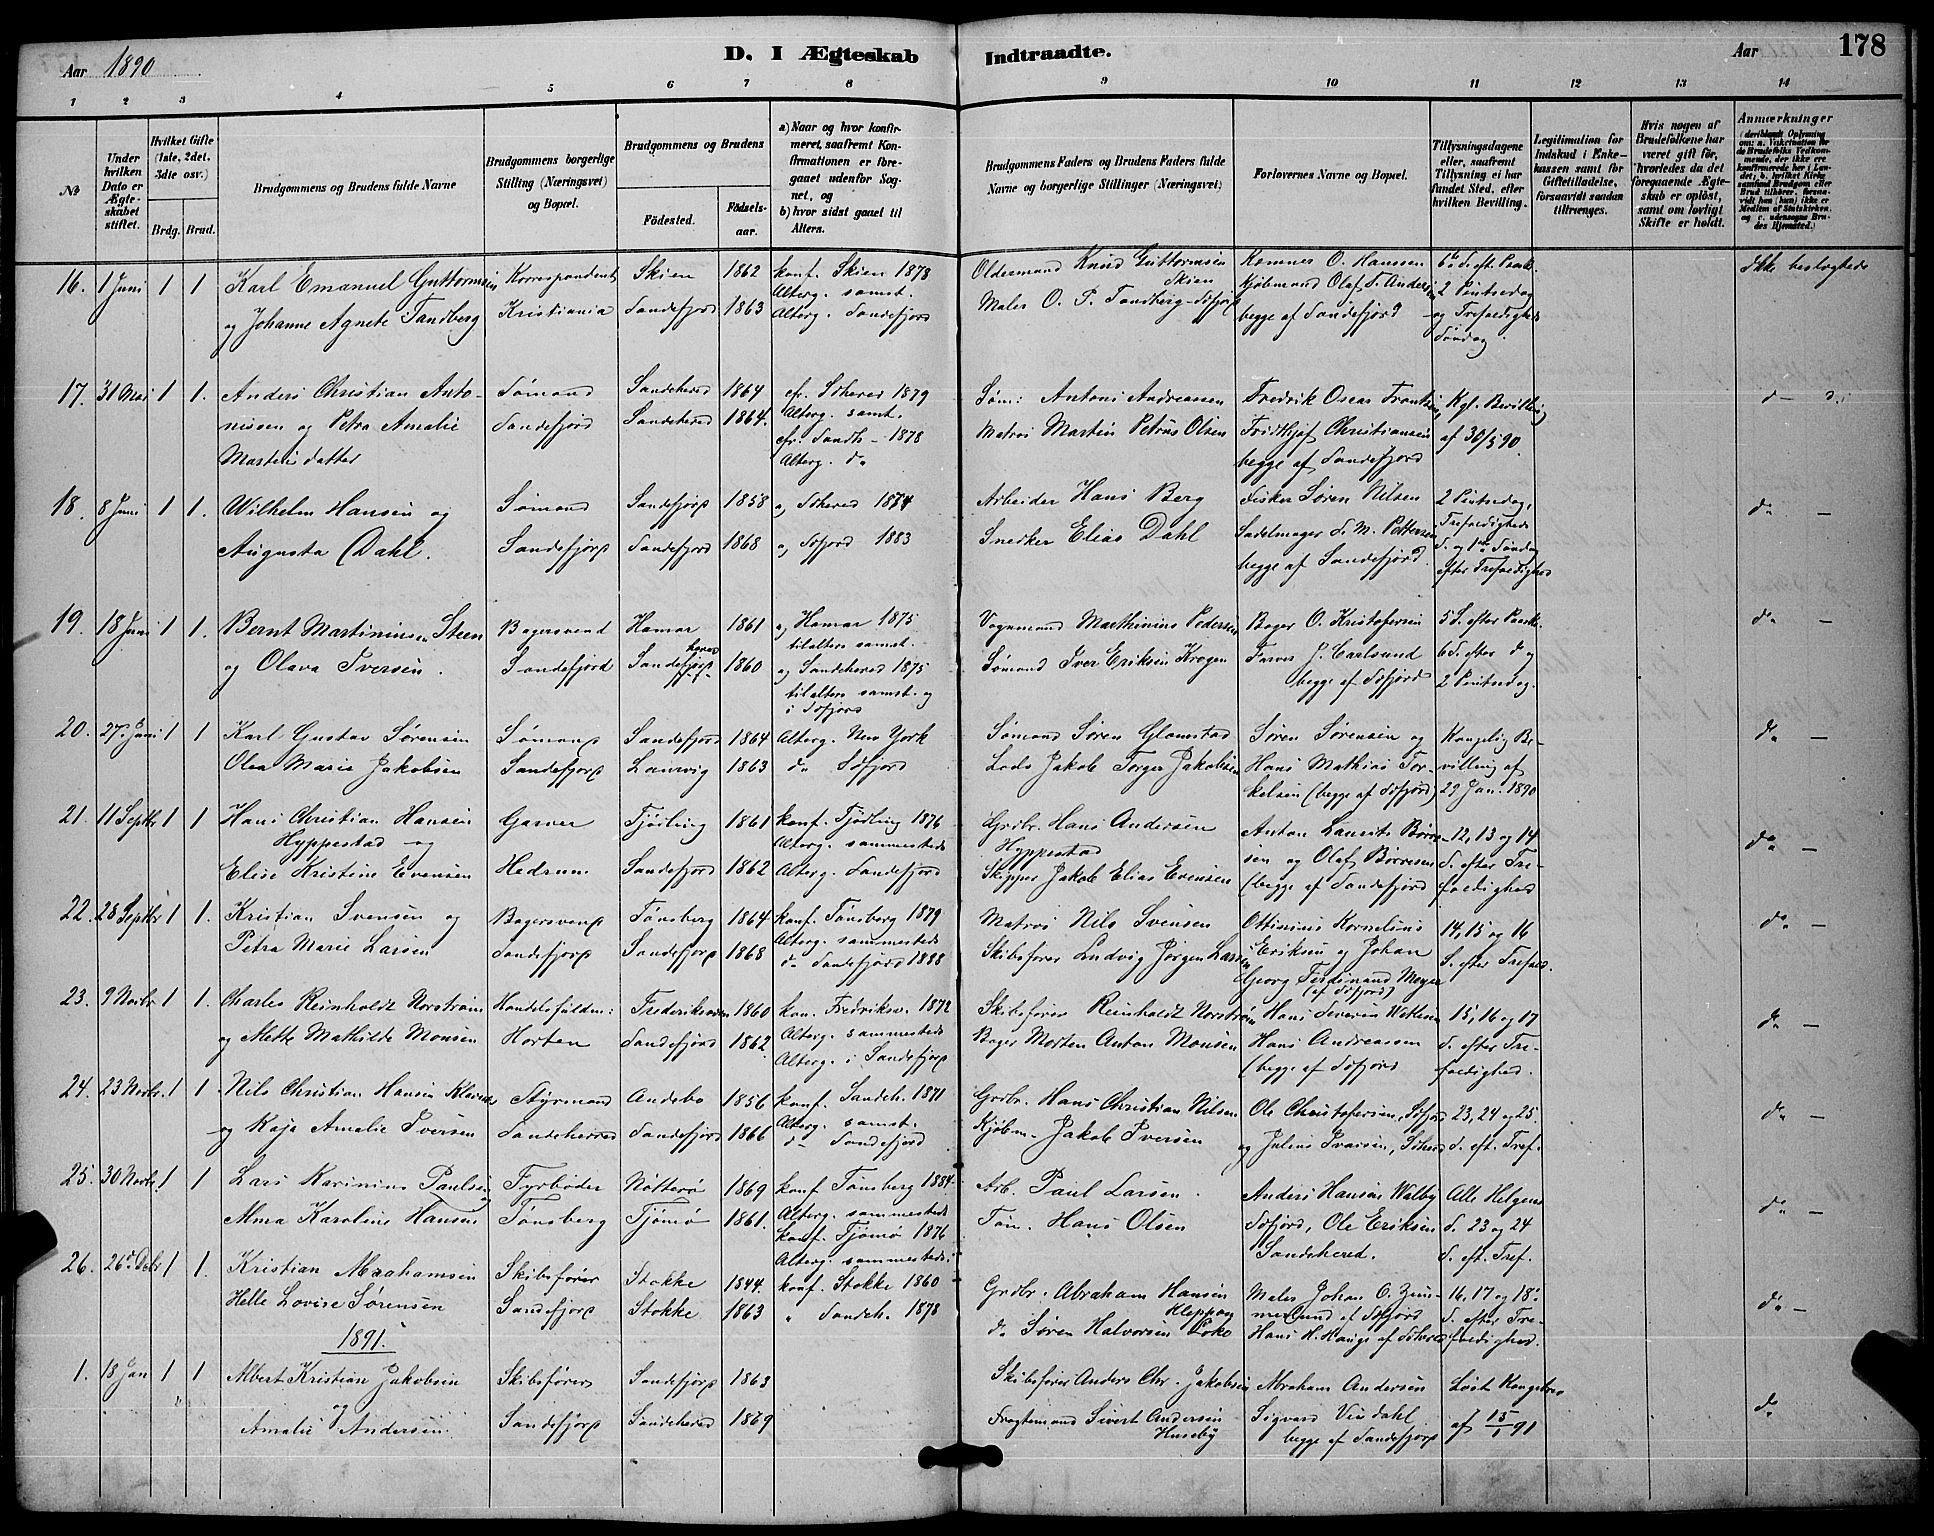 Aar 1890
D. I Ægteskab Indtraadte.
Aar
178
1 2 3 4 5 6 7 8 9 10 11 12 13 14
No
Under hvilken Dato er Ægteskabet stiftet.
Hvilket Gifte (1ste, 2det, 3die osv.)
Brdg. Brud.
Brudgommens og Brudens fulde Navne
Brudgommens borgerlige Stilling (Næringsvei) og Bopæl.
Brudgommens og Brudens
Födested. Födselsaar.
a) Naar og hvor konfirmeret, saafremt Konfirmationen er foregaaet udenfor Sognet, og b) hvor sidst gaaet til Alters.
Brudgommens Faders og Brudens Faders fulde Navne og borgerlige Stillinger (Næringsvei)
Forlovernes Navne og Bopæl.
Tillysningsdagene eller, saafremt Tillysning ei har fundet Sted, efter hvilken Bevilling.
Legitimation for Indskud i Enkekassen samt for Giftetilladelse, forsaavidt saadan tiltrænges.
Hvis nogen af Brudefolkene har været gift før, hvorledes da det foregaaende Ægteskab er opløst, samt om lovligt Skifte er holdt.
Anmærkninger
16. 1 Juni 1 1 Karl Emanuel Guttormsen Korrespondent Skien 1862 konf. Skien 1878 Oldermand Knud Guttormsen Kæmner O. Hanssen 6te S. eft. Paask. Ikke beslægtede
Alterg. samst. Skien Kjøbmand Olaf T. Andersen 2 Pintsedag
og Johanne Agnete Tandberg Kristiania Sandefjord 1863 Alterg. Sandefjord Maler O. P. Tandberg Sdfjord begge af Sandefjord og Trefoldigheds Søndag.
17. 31 Mai 1 1. Anders Christian Anto- Sømand Sandeherred 1864 cfr. Sdherred 1879 Søm: Antoni Andreassen Fredrik Oscar Frantsen Kgl. Bevilling d— d.
nissen og Petra Amalie Sandefjord Sandeherred 1864. Alterg. samt. Matros Martin Petrus Olsen Fridthjof Christiansen af 30/5 90.
Martinsdatter cfr. Sandh — 1878 begge af Sandefjord
Alterg. do
18. 8 Juni 1 1. Wilhelm Hansen og Sømand Sandefjord 1858 a, Sdherred 1874 Arbeider Hans Berg Fisker Søren Nilsen 2 Pintsedag, do —
Augusta Dahl. Sandefjord Sandefjord 1868 a, Sdfjord 1883 Snedker Elias Dahl Sadelmager S. M. Pettersen Trefoldigheds
begge af Sandefjord. S. og 1ste Søndag
efter Trefoldighed
19. 18 Juni 1 1. Bernt Martiniusen Steen Bagersvend Hamar 1861 a, Hamar 1875 Vognmand Marthinius Pedersen Bager O. Kristofersen 5 S. efter Paask. do —
tilalters samst.
og Olava Iversen. Sandefjord Sandefjord 1860 og Sandeherred 1875 Sømand Iver Eriksen Krogen Farver J. Carlsund 6 S. efter do og
tilalters samst. og begge af Sdfjord 2 Pintsedag.
i Sdfjord
20. 27. Juni 1 1 Karl Gustav Sørensen Sømand Sandefjord 1864 Alterg. New York Sømand Søren Glomstad Søren Sørensen og Kongelig Be- do —
Olea Marie Jakobsen Sandefjord Laurvig 1863 do Sdfjord Lods Jakob Torger Jakobsen Hans Mathias Tor- villing af
kelsen (begge af Sdfjord) 29 Jan. 1890
21. 11 Septbr 1 1 Hans Christian Hansen Garver Tjølling 1861 konf. Tjølling 1876 Grdbr. Hans Andersen Anton Laurits Børre- 12, 13 og 14 do —
Hyppestad og Alterg. sammesteds Hyppestad sen og Olaf Børresen S. efter Tre-
Elise Kristine Evensen Hedrum Sandefjord 1862 Alterg. Sandefjord Skipper Jakob Elias Evensen (begge af Sandefjord) foldighed
22. 28 Septbr 1 1. Kristian Svensen og Bagersvend Tønsberg 1864 konf. Tønsberg 1879 Matros Nils Svensen Ottinius Kornelius 14, 15 og 16 do —
Petra Marie Larsen Sandefjord Sandefjord 1868 Alterg. sammesteds Skibsfører Ludvig Jørgen Larsen Eriksen og Johan S. efter Trefold.
do Sandefjord 1888 Georg Ferdinand Meyer
(af Sdfjord)
23. 9 Novbr. 1 1. Charles Reinholdt Norstrøm Handelsfuldm: Frederiksværn 1860 kon. Fredriksv. 1872 Skibsfører Reinholdt Norstrøm Hans Severin Wettesen 15, 16 og 17 do —
og Mette Mathilde Monsen Horten Sandefjord 1862. Alterg. sammesteds Bager Morten Anton Monsen Hans Andreassen S. efter Tre-
Alterg. i Sandefjord (begge af Sdfjord) foldighed.
24. 23 Novbr. 1 1 Nils Christian Hansen Klavenes Styrmand Andebo 1856 konf. Sandeh. 1871 Grdbr. Hans Christian Nilsen Ole Christofersen, Sdfjord 23, 24 og 25. do —
og Kaja Amalie Iversen Sandeherred Sandefjord 1866 Alterg. samst. Kjøbm. Jakob Iversen og Julius Ivarsen, Sdherred S. eft. Tref.
do Sandefjord
25. 30 Novbr. 1 1 Lars Karinius Paulsen og Fyrbøder Nøtterø 1869 konf Tønsberg 1884. Arb. Paul Larsen. Anders Hansen Walby Alle Helgens do —
Alma Karoline Hansen Tønsberg Tjømø 1861. Alterg. sammesteds Tøm. Hans Olsen Sdfjord, Ole Eriksen S. 23 og 24
konf. Tjømø 1876 Sandeherred. S. eft. Tref.
Alterg. sammesteds.
26. 26de Debr 1 1. Kristian Abrahamsen Skibsfører Stokke 1844. konf. Stokke 1860 Grdbr. Abraham Hansen Maler Johan O. Zim- 16, 17 og 18de do —
Kleppan mermand af Sdfjord S. efter Tre-
Helle Lovise Sørensen Sandefjord Stokke 1863 " Sandeh. 1878 do Søren Halvorsen Hans H. Hauge af Sdherred foldighed.
1891.
1. 18 Jan 1 1 Albert Kristian Jakobsen Skibsfører Sandefjord 1863 Skibsfører Anders Chr. Jakobsen Abraham Andersen Løst Kongebrev do
og
Amalie Andersen Sandefjord Sandeherred 1869 Fragtemand Sivert Andersen Sigvard Vindahl af 15/1 91
Huseby begge af Sandefjord